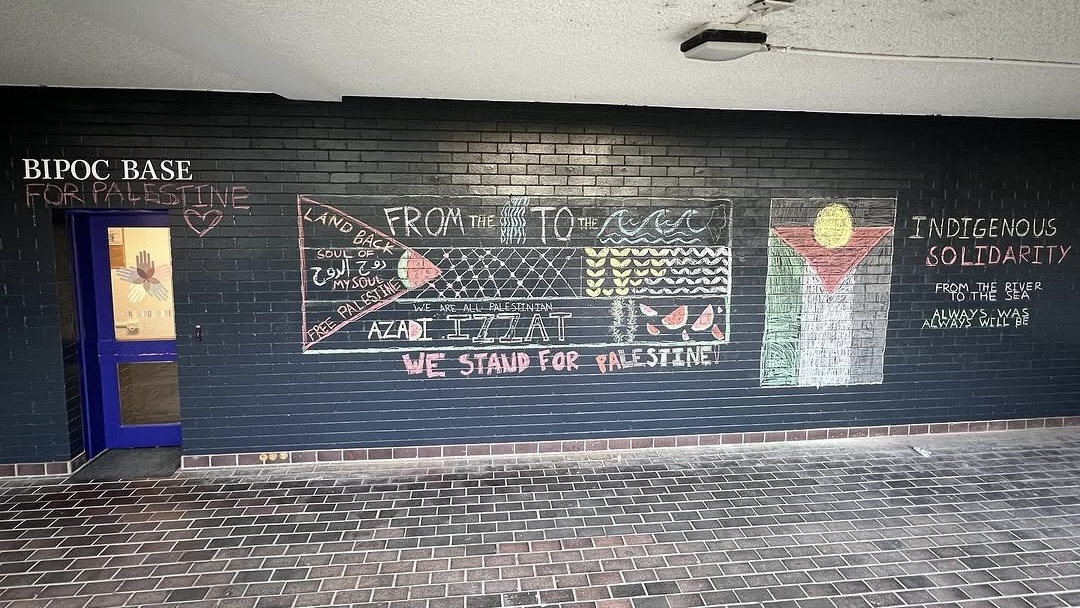 BIPOC BASE
FOR PALESTINE
LAND BACK
SOUL OF
روح الروح
MY SOUL
FREE PALESTINE
FROM THE TO THE
WE ARE ALL PALESTINIAN
AZADI IZZAT
WE STAND FOR PALESTINE!
INDIGENOUS
SOLIDARITY
FROM THE RIVER
TO THE SEA
ALWAYS WAS
ALWAYS WILL BE